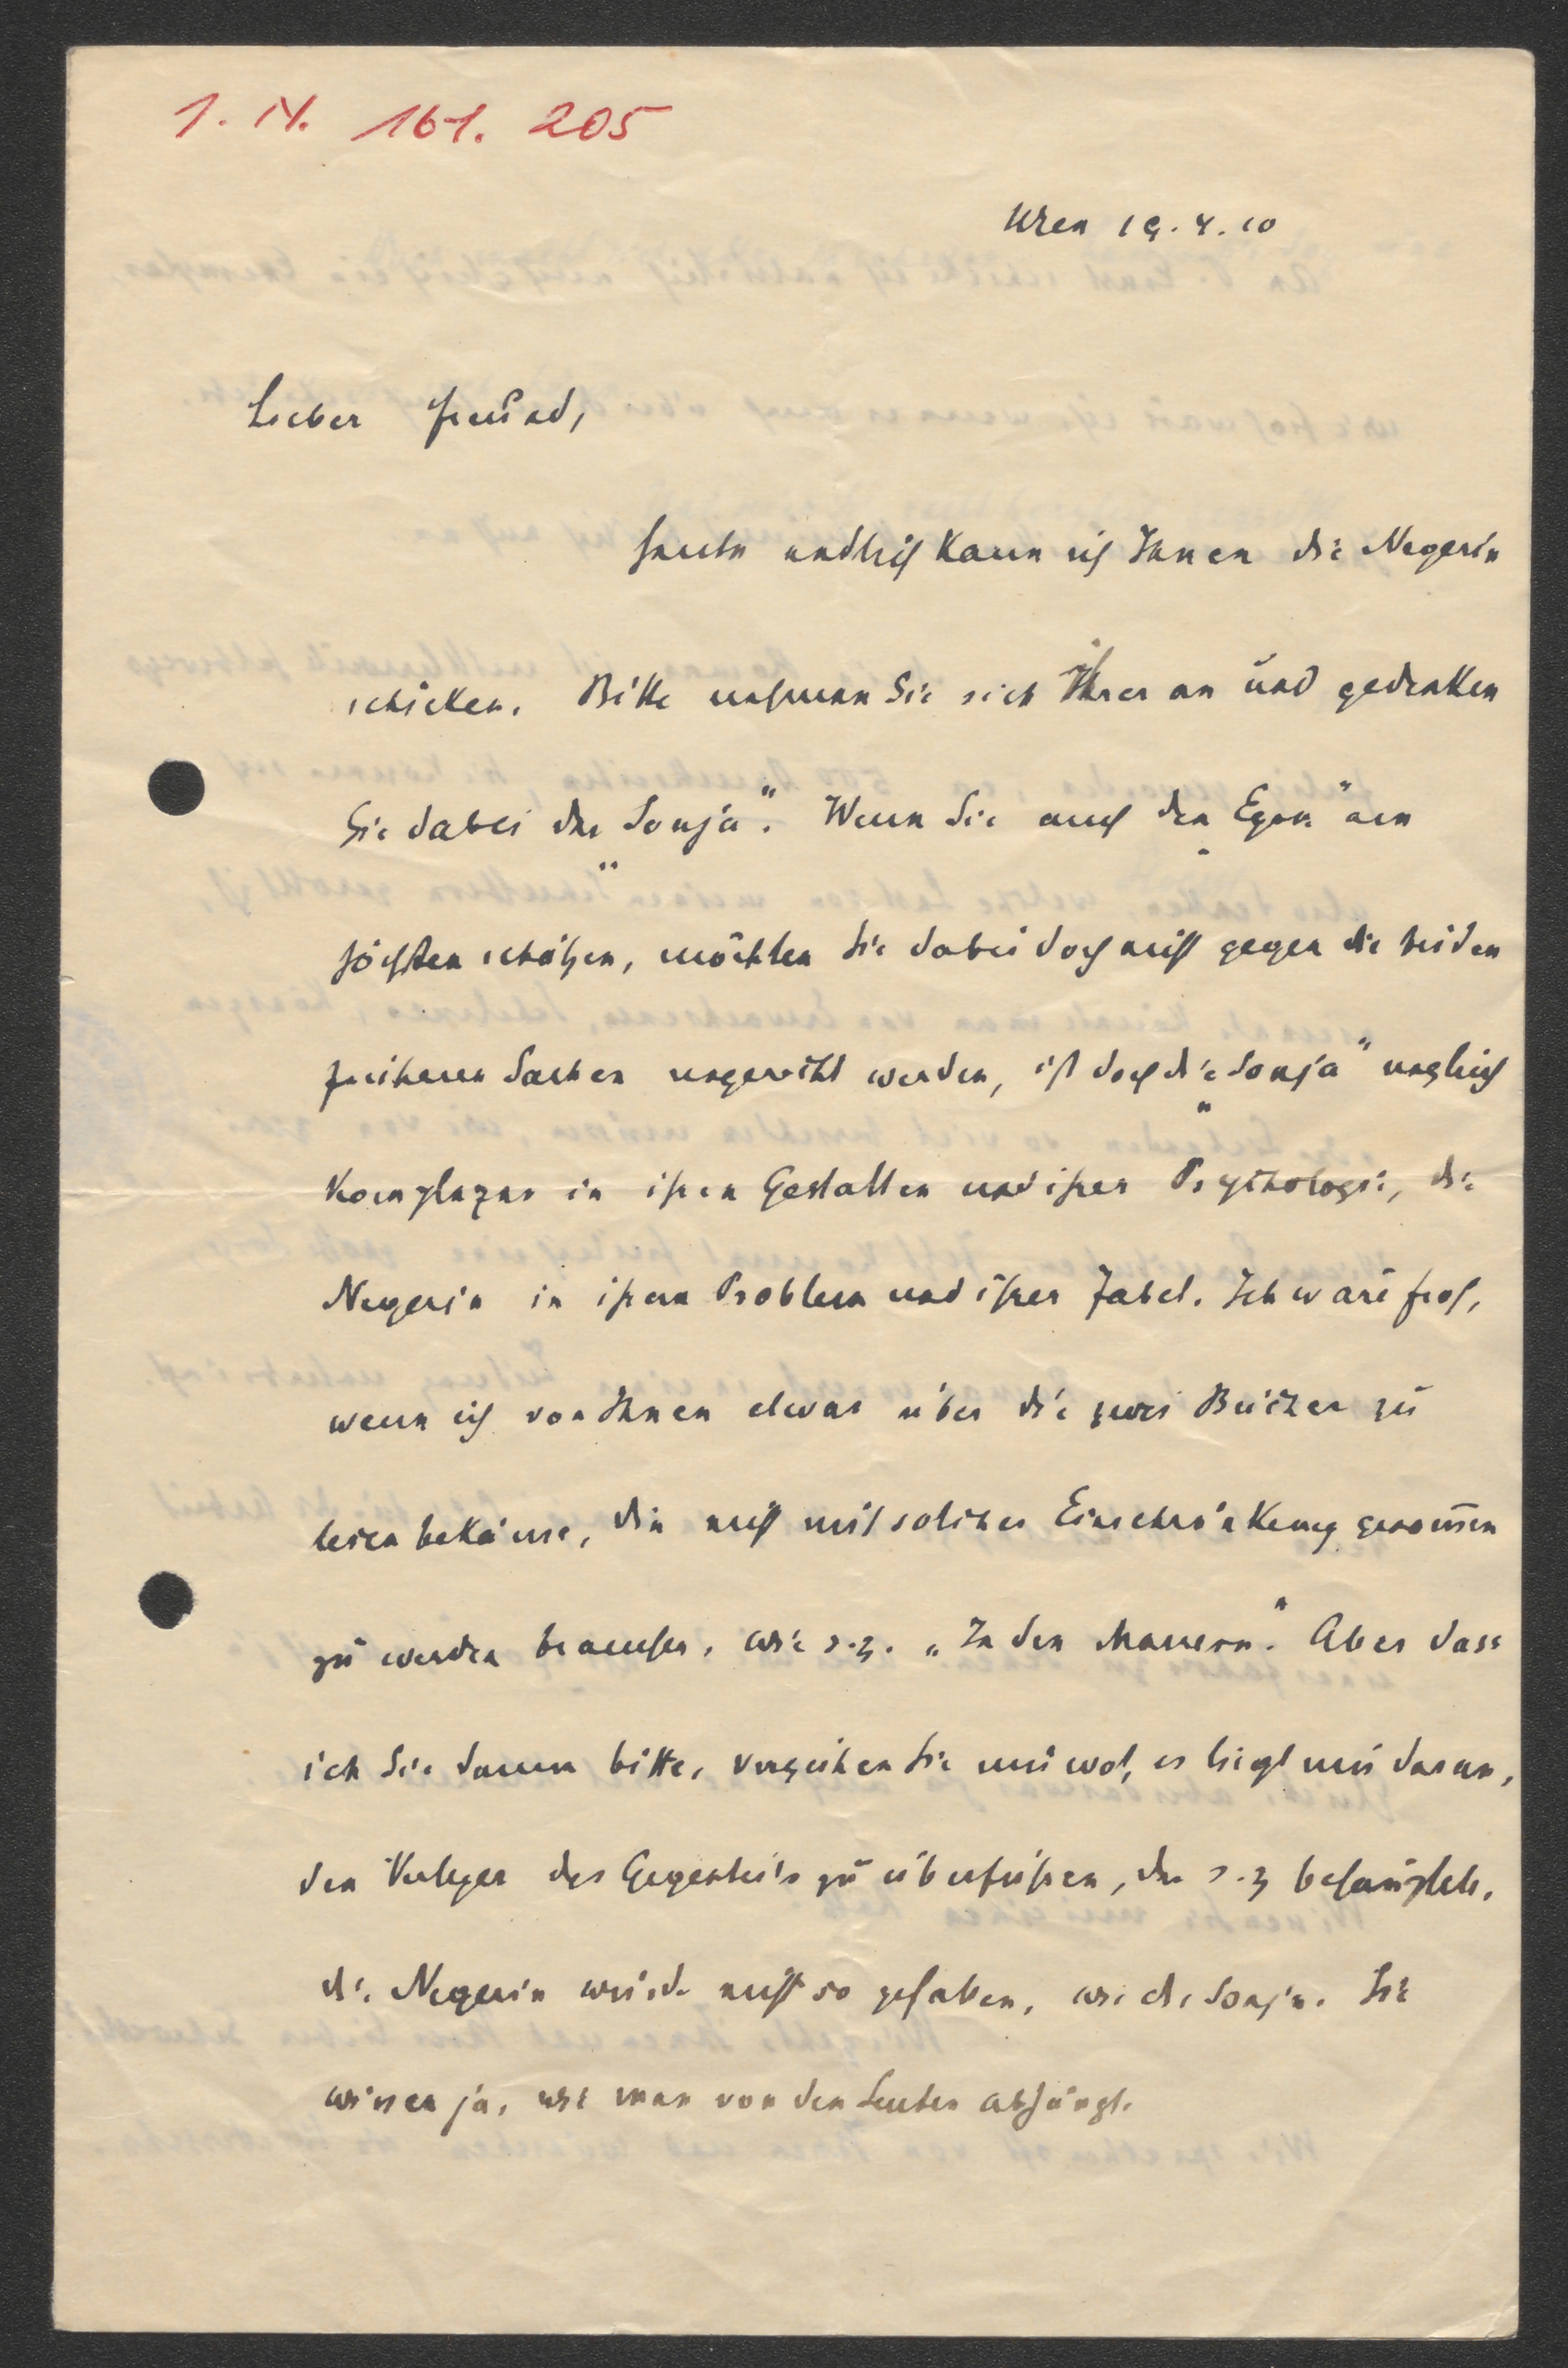 I. N. 161. 205
Wien 19. 4. 10
Lieber Freund,
heute endlich kann ich Ihnen die Negerin
schicken. Bitte nehmen Sie sich Ihrer an und gedenken
Sie dabei der „Sonja". Wenn Sie auch den „Egon" am
höchsten schätzen, möchten Sie dabei doch nicht gegen die beiden
früheren Sachen ungerecht werden, ist doch die „Sonja" ungleich
komplexer in ihren Gestalten und ihrer Psychologie, die
Negerin in ihrem Problem und ihrer Fabel. Ich wäre froh,
wenn ich von Ihnen etwas über die zwei Bücher zu
lesen bekäme, die nicht mit solcher Einschränkung genom̄en
zu werden brauchen, wie s. z. „In den Mauern". Aber dass
ich Sie darum bitte, verzeihen Sie mir wol, es liegt mir daran,
den Verleger des Gegenteils zu überführen, der s. z behauptete,
die Negerin würde nicht so gehoben, wie die Sonja. Sie
wissen ja, wie man von den Leuten abhängt.